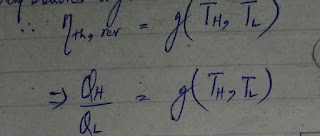 ∴ η_th, rev = g(T_H, T_L)
⇒ Q_H/Q_L = g(T_H, T_L)